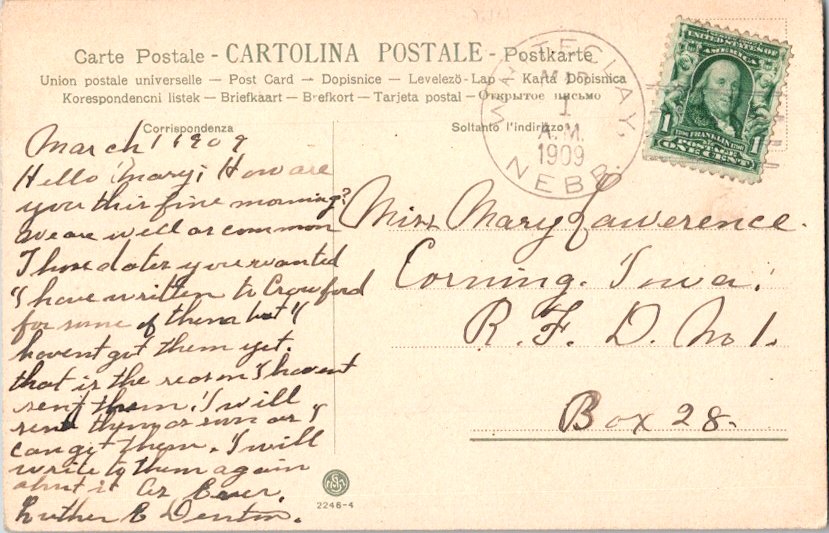 Carte Postale - CARTOLINA POSTALE - Postkarte
Union postale universelle — Post Card — Dopisnice — Levelezö-Lap — Karta Dopisnica
Korespondencni listek — Briefkaart — Brefkort — Tarjeta postal — Открытое письмо
Corrispondenza
Soltanto l'indirizzo
WAY TECLAY,
MAR
1
A.M.
1909
NEBR.
UNITED STATES OF
AMERICA
1706 FRANKLIN 1790
1 POSTAGE 1
ONE CENT
March 1 1909
Hello Mary; How are
you this fine morning?
We are well as common
Those dates you wanted
I have written to Crawford
for some of them but I
havent got them yet.
that is the reason I havent
sent them. I will
send them as soon as I
can get them. I will
write to them again
about it As Ever,
Luther E Denton.
Miss Mary Lawerence.
Corning. Iowa.
R. F. D. No 1.
Box 28.
2246-4